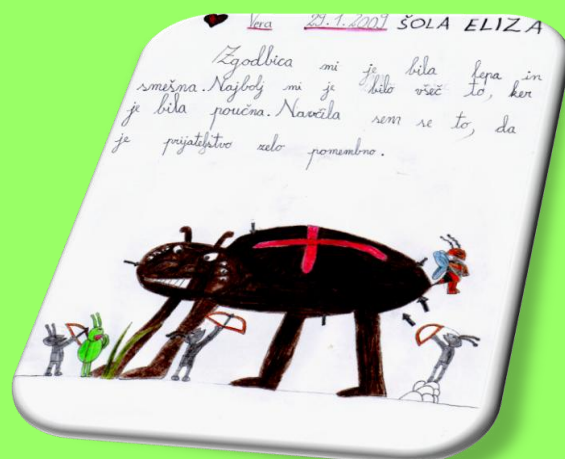 Vera 29.1.2009 ŠOLA ELIZA
Zgodbica mi je bila lepa in
smešna. Najbolj mi je bilo všeč to, ker
je bila poučna. Navčila sem se to, da
je prijateljstvo zelo pomembno.